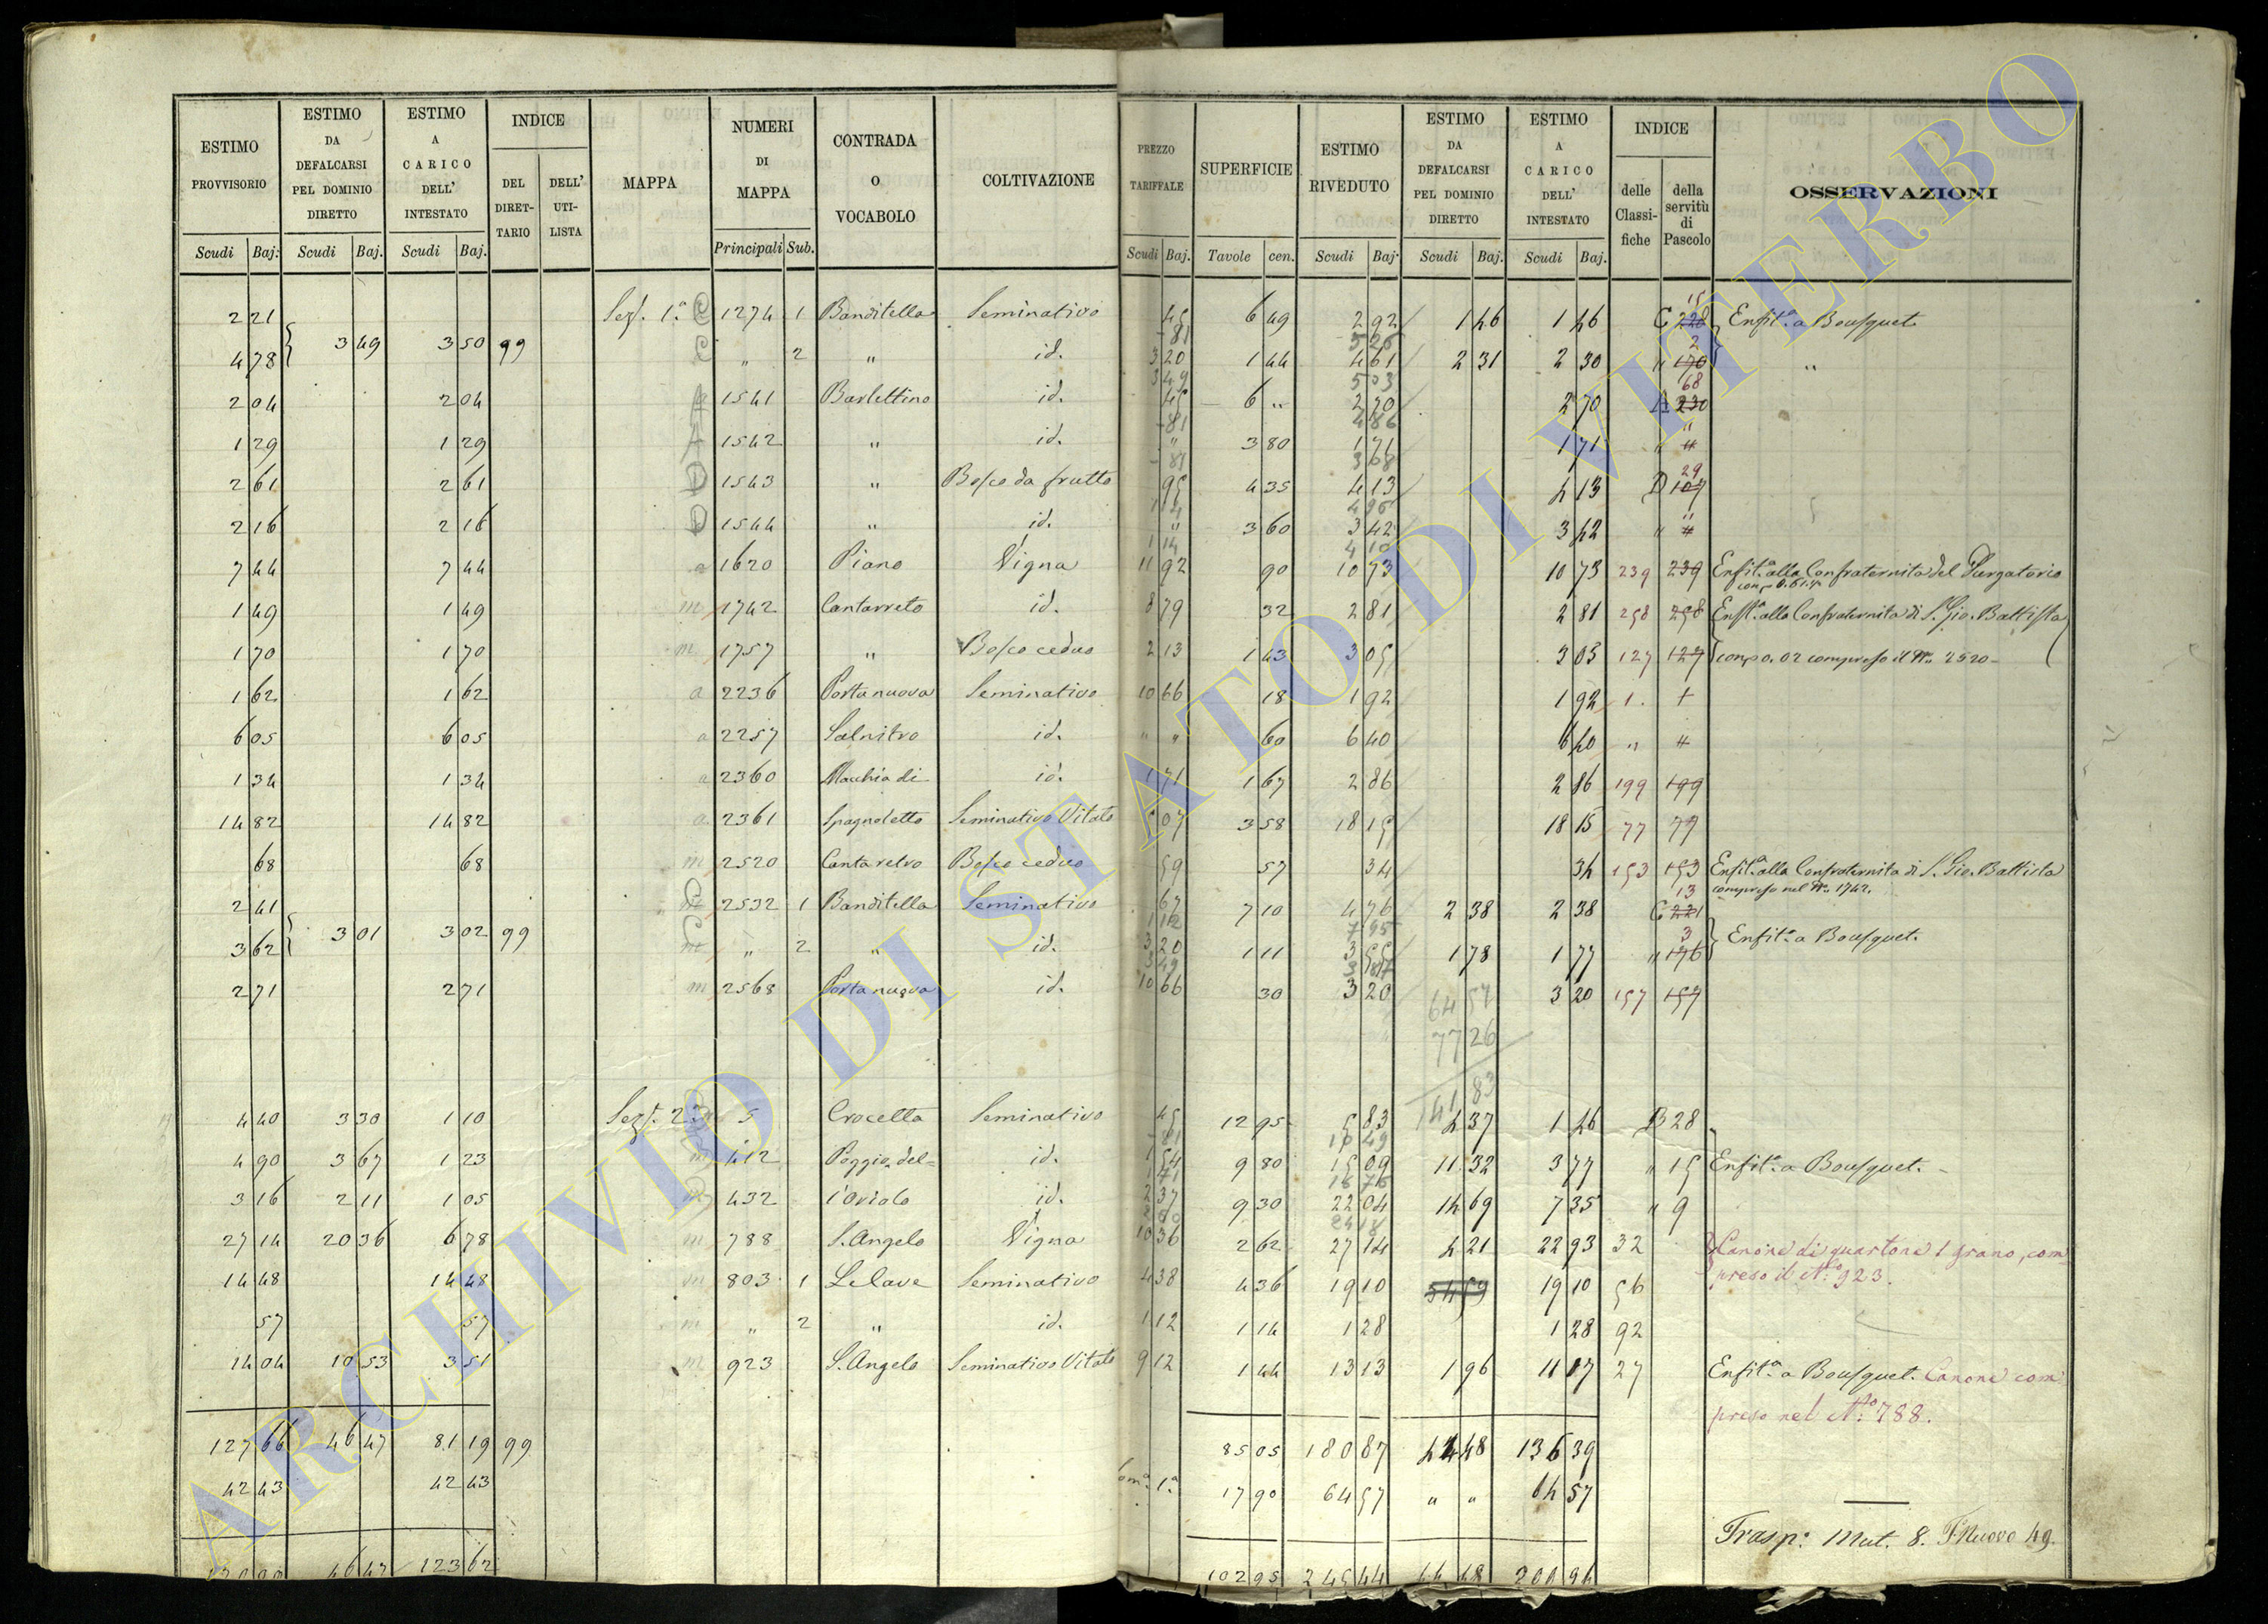 ESTIMO PROVVISORIO | ESTIMO DA DEFALCARSI PEL DOMINIO DIRETTO | ESTIMO A CARICO DELL' INTESTATO | INDICE | MAPPA | NUMERI DI MAPPA | CONTRADA O VOCABOLO | COLTIVAZIONE | PREZZO TARIFFALE | SUPERFICIE | ESTIMO RIVEDUTO | ESTIMO DA DEFALCARSI PEL DOMINIO DIRETTO | ESTIMO A CARICO DELL' INTESTATO | INDICE | OSSERVAZIONI
DEL DIRETTARIO | DELL' UTILISTA | delle Classifiche | della servitù di Pascolo
Scudi | Baj. | Scudi | Baj. | Scudi | Baj. | Principali | Sub. | Scudi | Baj. | Tavole | cen. | Scudi | Baj. | Scudi | Baj. | Scudi | Baj.
2 21 | Sez. 1.a C | 1274 | 1 | Banditella | Seminativo | 45 | 6 49 | 2 92 | 1 46 | 1 46 | C 228 15 | Enfit.a a Bousquet
3 49 | 3 50 | 99
4 78 | C | " | 2 | " | id. | 3 20 | 1 44 | 4 61 | 2 31 | 2 30 | " 170 2 | "
2 04 | 2 04 | A | 1541 | Barlettino | id. | 45 | 6 " | 2 70 | 2 70 | A 230 68
1 29 | 1 29 | A | 1542 | " | id. | " | 3 80 | 1 71 | 1 71 | " "
2 61 | 2 61 | D | 1543 | " | Bosco da frutto | 95 | 4 35 | 4 13 | 4 13 | D 107 29
2 16 | 2 16 | D | 1544 | " | id. | " | 3 60 | 3 42 | 3 42 | " "
7 44 | 7 44 | a | 1620 | Piano | Vigna | 11 92 | 90 | 10 73 | 10 73 | 239 | 239 | Enfit.a alla Confraternita del Purgatorio
1 49 | 1 49 | m | 1742 | Cantarreto | id. | 8 79 | 32 | 2 81 | 2 81 | 258 | 258 | Enfit.a alla Confraternita di S. Gio. Battista
1 70 | 1 70 | m | 1757 | " | Bosco ceduo | 2 13 | 1 43 | 3 05 | 3 05 | 127 | 127 | compreso il N.o 2520
1 62 | 1 62 | a | 2236 | Porta nuova | Seminativo | 10 66 | 18 | 1 92 | 1 92 | 1
6 05 | 6 05 | a | 2257 | Salnitro | id. | " " | 60 | 6 40 | 6 40 | "
1 34 | 1 34 | a | 2360 | Macchia di | id. | 1 71 | 1 67 | 2 86 | 2 86 | 199 | 199
14 82 | 14 82 | a | 2361 | Spagnoletto | Seminativo Vitato | 5 07 | 3 58 | 18 15 | 18 15 | 77 | 77
68 | 68 | m | 2520 | Cantaretro | Bosco ceduo | 59 | 57 | 34 | 34 | 153 | 153 | Enfit.a alla Confraternita di S. Gio. Battista
compreso nel N.o 1742.
2 41 | C | 2532 | 1 | Banditella | Seminativo | 67 | 7 10 | 4 76 | 2 38 | 2 38 | C 221 13
3 01 | 3 02 | 99 | Enfit.a a Bousquet.
3 62 | C | " | 2 | " | id. | 3 20 | 1 11 | 3 55 | 1 78 | 1 77 | " 176 3
2 71 | 2 71 | m | 2568 | Porta nuova | id. | 10 66 | 30 | 3 20 | 3 20 | 157 | 157
64 57
77 26
141 83
4 40 | 3 30 | 1 10 | Sez. 2.a | 5 | Crocetta | Seminativo | 45 | 12 95 | 5 83 | 4 37 | 1 46 | B 28
4 90 | 3 67 | 1 23 | 412 | Poggio del= | id. | 1 54 | 9 80 | 15 09 | 11 32 | 3 77 | " 15 | Enfit.a a Bousquet.
3 16 | 2 11 | 1 05 | 432 | l'Oriolo | id. | 2 37 | 9 30 | 22 04 | 14 69 | 7 35 | " 9
27 14 | 20 36 | 6 78 | m | 788 | S. Angelo | Vigna | 10 36 | 2 62 | 27 14 | 4 21 | 22 93 | 32 | Canone di quartone 1 grano, com
preso il N.o 923.
14 48 | 14 48 | m | 803 | 1 | Le Cave | Seminativo | 4 38 | 4 36 | 19 10 | 19 10 | 56
57 | 57 | m | " | 2 | " | id. | 1 12 | 1 14 | 1 28 | 1 28 | 92
14 04 | 10 53 | 3 51 | m | 923 | S. Angelo | Seminativo Vitato | 9 12 | 1 44 | 13 13 | 1 96 | 11 17 | 27 | Enfit.a a Bousquet. Canone com
preso nel N.o 788.
127 66 | 46 47 | 81 19 | 99 | 85 05 | 180 87 | 44 48 | 136 39
42 43 | 42 43 | 1.a | 17 90 | 64 57 | " " | 64 57
Trasp.o Mut. 8. F.o Nuovo 49.
46 47 | 123 62 | 102 95 | 245 44 | 44 48 | 200 96
ARCHIVIO DI STATO DI VITERBO